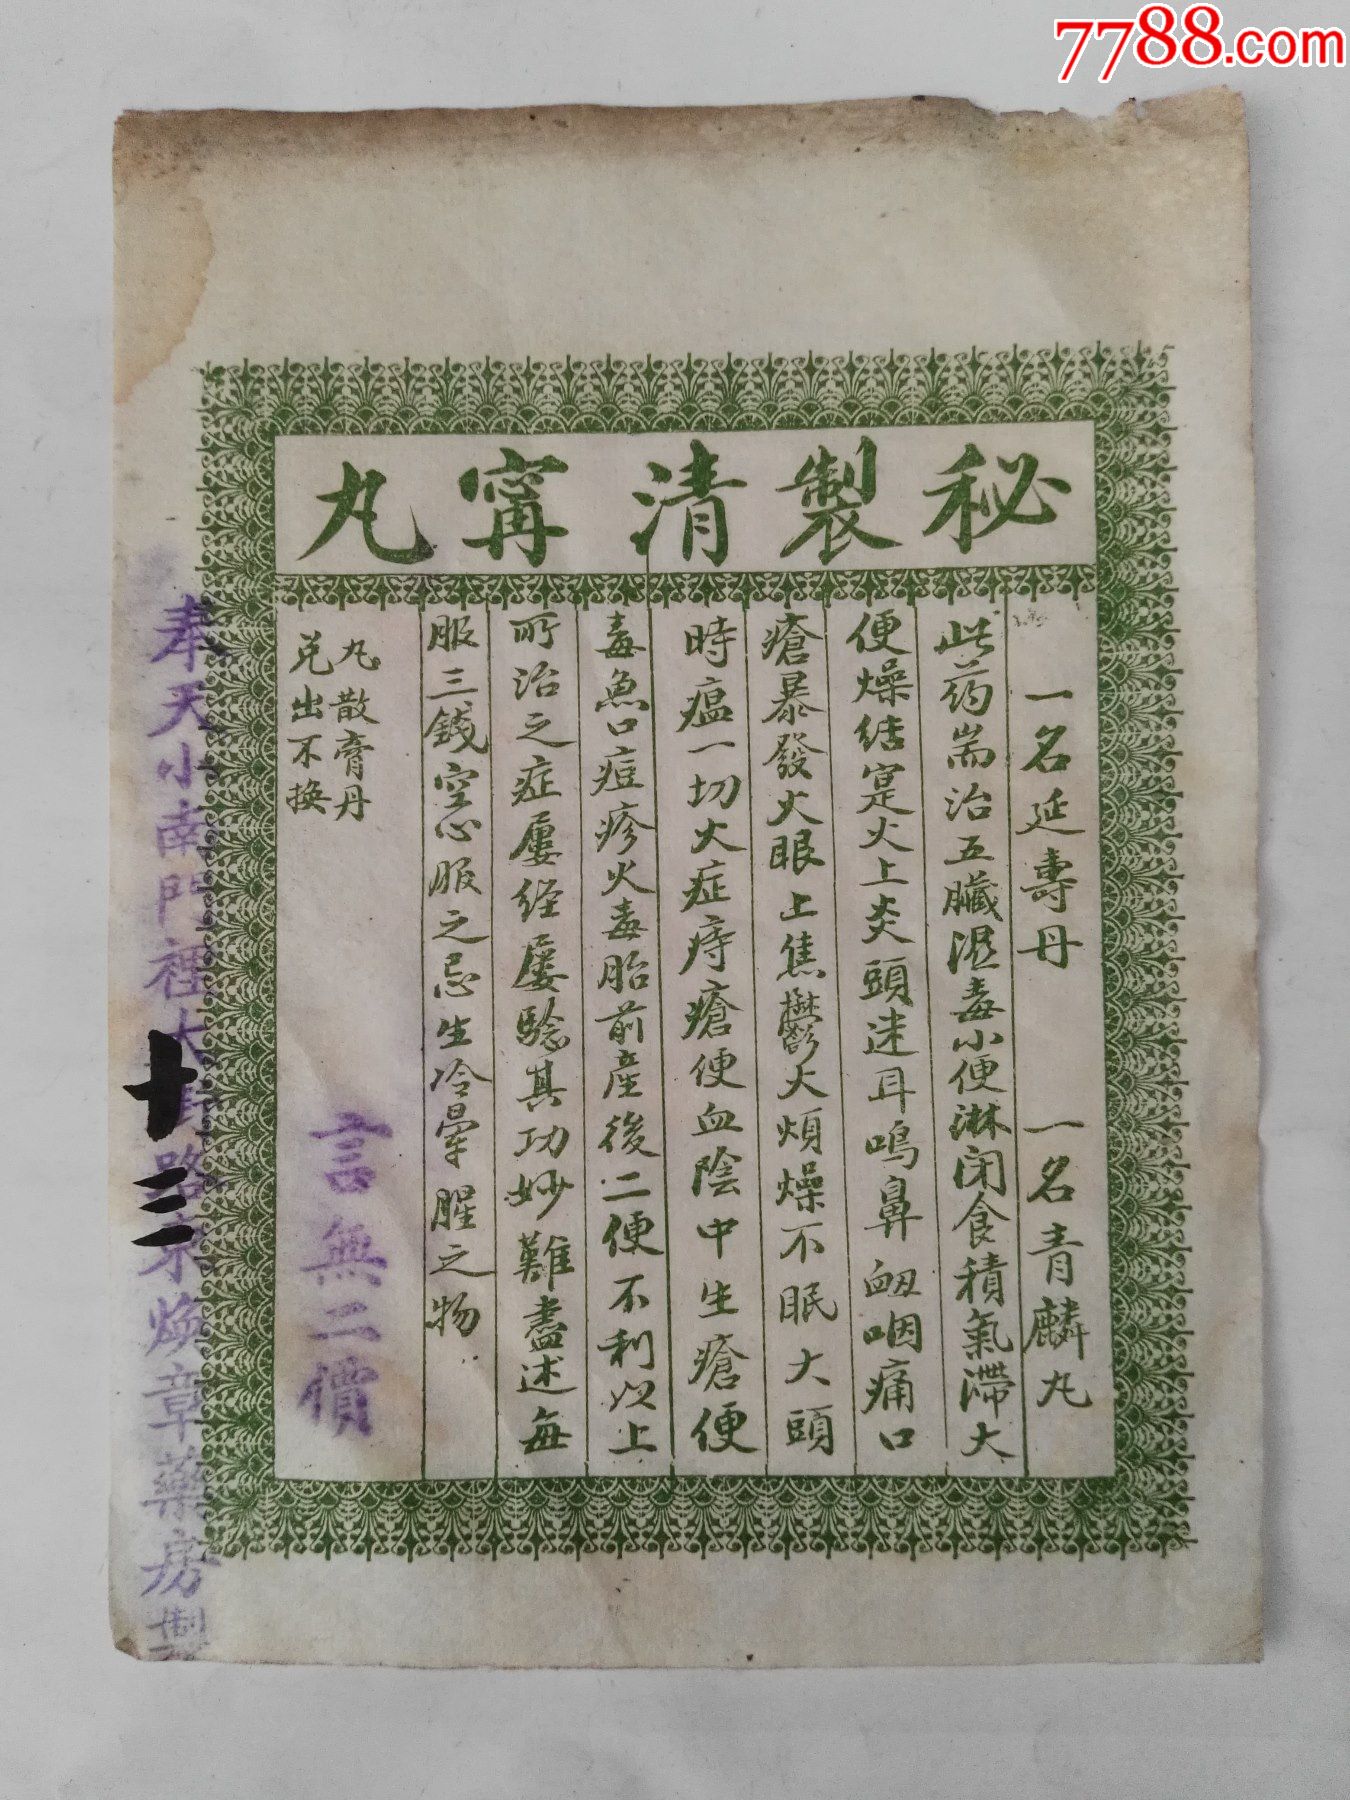 7788.com
秘製清寗丸
一名延壽丹 一名青麟丸
此药耑治五臟濕毒小便淋闭食積氣滯大
便燥结寔火上炎頭迷耳鳴鼻衂咽痛口
瘡暴發火眼上焦鬱火煩燥不眠大頭
時瘟一切火症痔瘡便血陰中生瘡便
毒魚口痘疹火毒胎前産後二便不利以上
所治之症屢经屢騐其功妙難盡述每
服三錢空心服之忌生冷葷腥之物
丸散膏丹
兑出不换
言無二價
奉天小南門裡大街路東焕章藥房製
十三